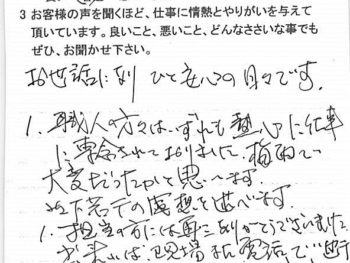 3 お客様の声を聞くほど、仕事に情熱とやりがいを与えて
頂いています。良いこと、悪いこと、どんなささいな事でも
ぜひ、お聞かせ下さい。
お世話になり ひと安心の日々です。
1. 職人の方々は、いずれも熱心に仕事
に専念されておりました。梅雨で
大変だったかと思います。
以下若干の感想を述べます。
1. 担当の方には再三ありがとうございました。
出来れば現場から電話で